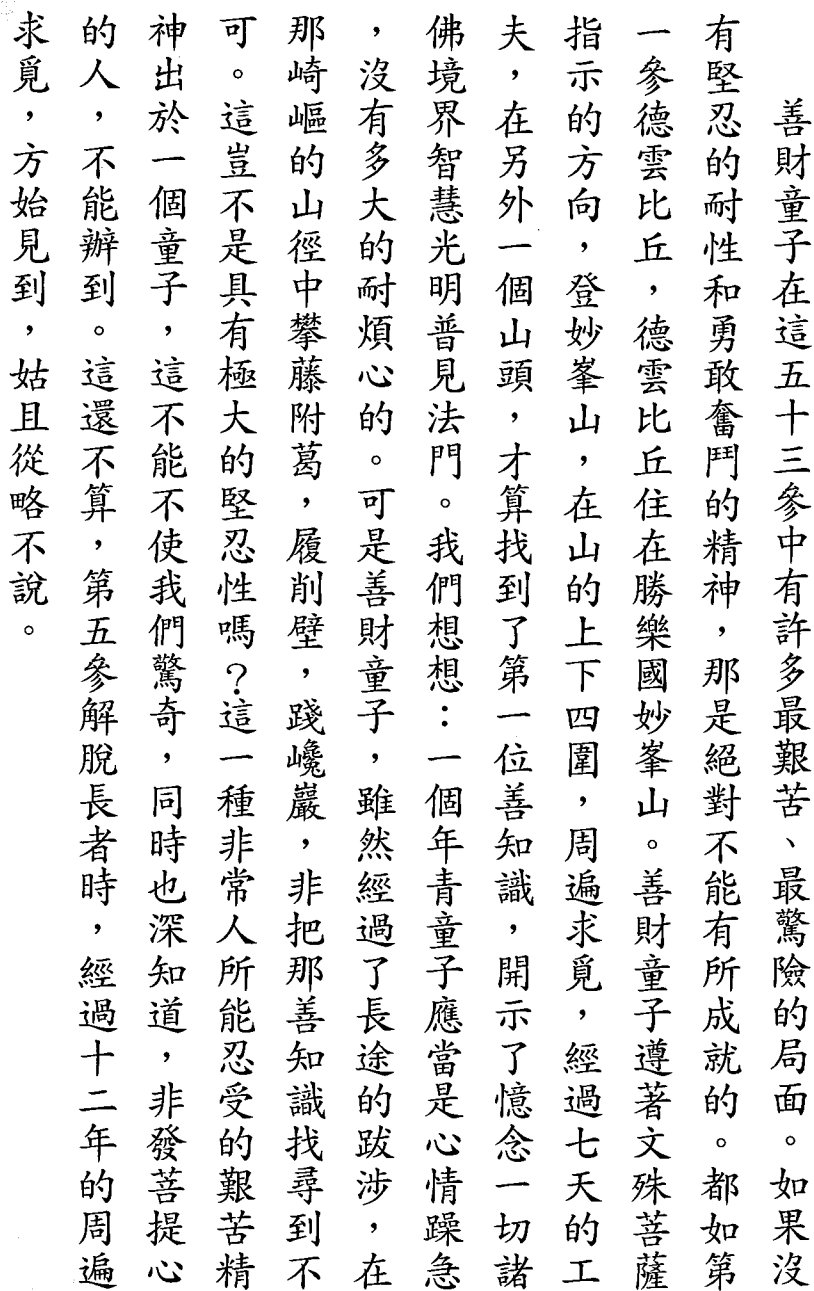 善財童子在這五十三參中有許多最艱苦、最驚險的局面。如果沒
有堅忍的耐性和勇敢奮鬥的精神，那是絕對不能有所成就的。都如第
一參德雲比丘，德雲比丘住在勝樂國妙峯山。善財童子遵著文殊菩薩
指示的方向，登妙峯山，在山的上下四圍，周遍求覓，經過七天的工
夫，在另外一個山頭，才算找到了第一位善知識，開示了憶念一切諸
佛境界智慧光明普見法門。我們想想：一個年青童子應當是心情躁急
，沒有多大的耐煩心的。可是善財童子，雖然經過了長途的跋涉，在
那崎嶇的山徑中攀藤附葛，履削壁，踐巉巖，非把那善知識找尋到不
可。這豈不是具有極大的堅忍性嗎？這一種非常人所能忍受的艱苦精
神出於一個童子，這不能不使我們驚奇，同時也深知道，非發菩提心
的人，不能辦到。這還不算，第五參解脫長者時，經過十二年的周遍
求覓，方始見到，姑且從略不說。